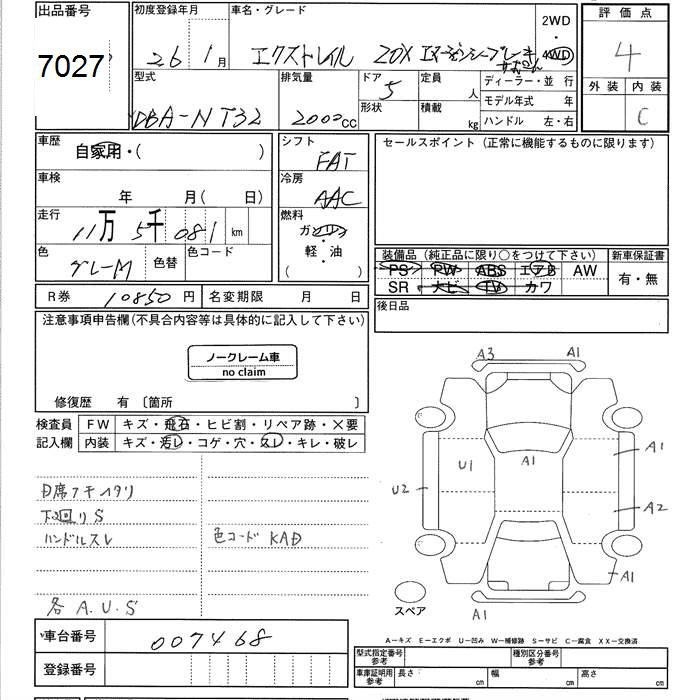 出品番号
7027
初度登録年月
26 1月
車名・グレード
エクストレイル 20X エマージェンシーブレーキ
2WD
・
4WD
評価点
4
外装 内装
C
型式
DBA-NT32
排気量
2000cc
ドア
5
形状
定員
人
積載
kg
ディーラー・並行
モデル年式 年
ハンドル 左・右
車歴
自家用・( )
シフト
FAT
セールスポイント (正常に機能するものに限ります)
車検
年 月( 日)
冷房
AAC
走行
11万 5千 081 km
燃料
ガソリン
軽・油
( )
色
グレーM
色替
色コード
装備品 (純正品に限り○をつけて下さい)
新車保証書
PS PW ABS エアB AW
SR ナビ TV カワ
有・無
R券 10850円
名変期限 月 日
後日品
注意事項申告欄(不具合内容等は具体的に記入して下さい)
ノークレーム車
no claim
修復歴 有 〔箇所 〕
検査員
記入欄
FW キズ・飛石・ヒビ割・リペア跡・×要
内装 キズ・汚レ・コゲ・穴・スレ・キレ・破レ
下回りS
ハンドルスレ
色コード KAD
各 A.U.S
A3 A1
U1 A1 A1
U2 A2
A1
スペア
A1
車台番号 007468
登録番号
A-キズ E-エクボ U-凹み W-補修跡 S-サビ C-腐食 XX-交換済
型式指定番号
参考
種別区分番号
参考
車庫証明用
参考
長さ cm 幅 cm 高さ cm